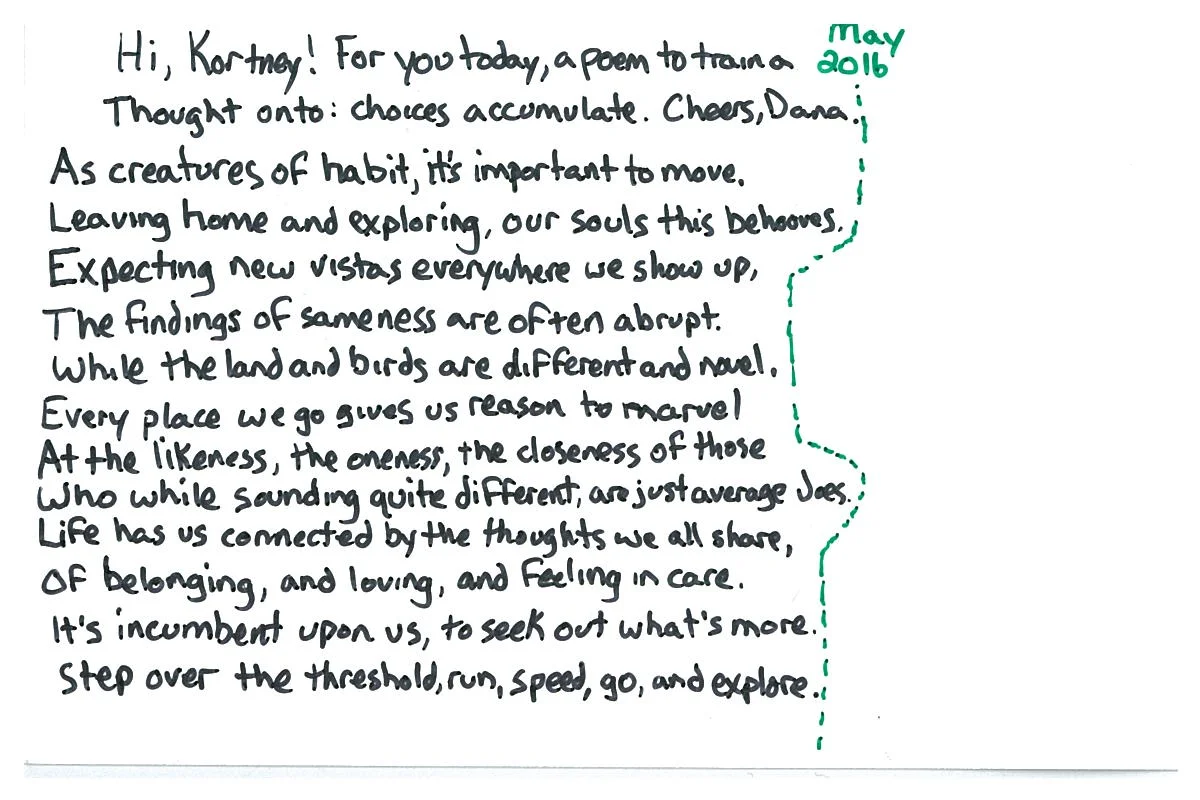 Hi, Kortney! For you today, a poem to train a
Thought onto: choices accumulate. Cheers, Dana.
May
2016
As creatures of habit, it's important to move.
Leaving home and exploring, our souls this behooves.
Expecting new vistas everywhere we show up,
The findings of sameness are often abrupt.
While the land and birds are different and novel.
Every place we go gives us reason to marvel
At the likeness, the oneness, the closeness of those
Who while sounding quite different, are just average Joes.
Life has us connected by the thoughts we all share,
Of belonging, and loving, and feeling in care.
It's incumbent upon us, to seek out what's more.
Step over the threshold, run, speed, go, and explore.